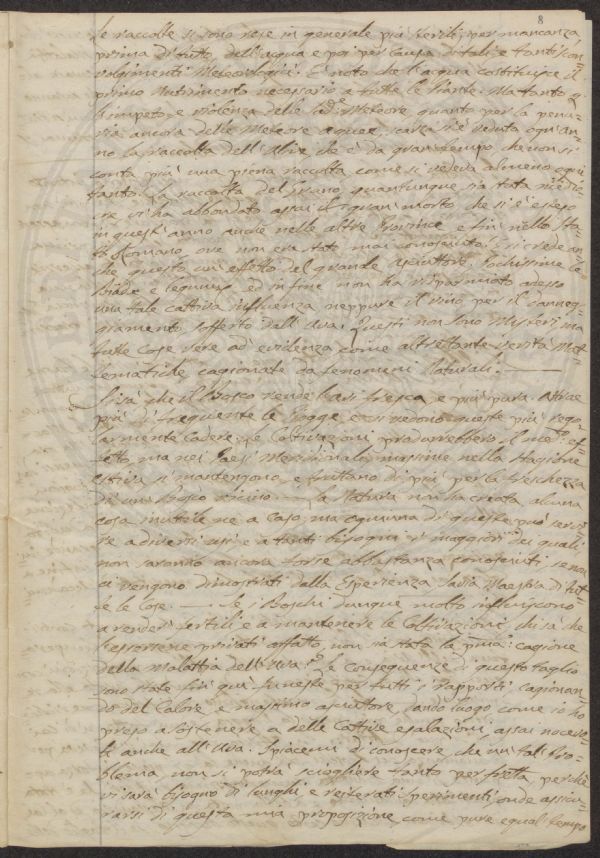 8
le raccolte si sono rese in generale più sterili, per mancanza
prima di tutto dell'acqua e poi per causa di tali e tanti scon-
volgimenti Meteorologici. È noto che l'acqua costituisce il
primo Nutrimento necessario a tutte le Piante. Ma tanto
l'impeto, e violenza delle sud.e Meteore quanto per la penu-
ria ancora delle Meteore acquee, scarsa si è veduta ogni an-
no la raccolta dell'Ulive che è da gran tempo che non si
conta più una piena raccolta come si vedeva almeno ogni
tanto. La raccolta del Grano, quantunque sia stata medio-
re vi ha abbondato assai il Gran morto che si è esteso
in quest'anno anche nelle altre Provincie e fin nello Sta-
to Romano, ove non era stato mai conosciuto. Si crede an-
che questo un effetto del grande asciuttore. Pochissime le
Biade e legumi, ed infine non ha risparmiato adesso
una tale cattiva influenza neppure il vino per il danneg-
giamento sofferto dall'Uva. Questi non sono Misteri ma
tutte cose vere ad evidenza come altrettante verità Mat-
tematiche cagionate da fenomeni Naturali.
Si sa che il Bosco rende l'aria fresca e più pura. Attrae
più di frequente le Piogge e si vedono queste più rego-
larmente cadere. Le Coltivazioni produrrebbero il med.o ef-
fetto ma nei Paesi Meridionali massime nella Stagione
estiva si mantengono, e fruttano di più per la freschezza
di un Bosco vicino. La Natura non ha creata alcuna
cosa inutile ne a caso, ma ognuna di queste può servi-
re a diversi usi e a tanti bisogni i maggiori dei quali
non saranno ancora forse abbastanza conosciuti se non
ci vengono dimostrati dalla Sperienza Savia Maestra di tut-
te le Cose. Se i Boschi dunque molto influiscono
a render fertili e a mantenere le Coltivazioni chi sa che
l'essersene privati affatto, non sia stata la prima cagione
della Malattia dell'Uva? Le conseguenze di questo taglio
sono state fin quì funeste per tutti i rapporti cagionan-
do del Calore, e massimo asciuttore, dando luogo come io ho
preso a sostenere a delle Cattive esalazioni assai nocevo-
li anche all'Uva. Spiacemi di conoscere che un tal Pro-
blema non si potrà sciogliere tanto per fretta, perchè
vi sarà bisogno di lunghi e reiterati sperimenti onde assicu-
rarsi di questa mia proposizione, come pure egual tempo